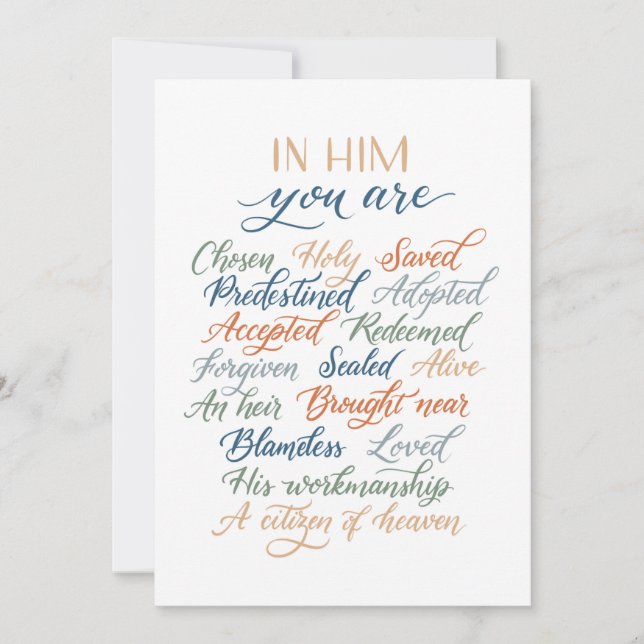 IN HIM
you are
Chosen Holy Saved
Predestined Adopted
Accepted Redeemed
Forgiven Sealed Alive
An heir Brought near
Blameless Loved
His workmanship
A citizen of heaven